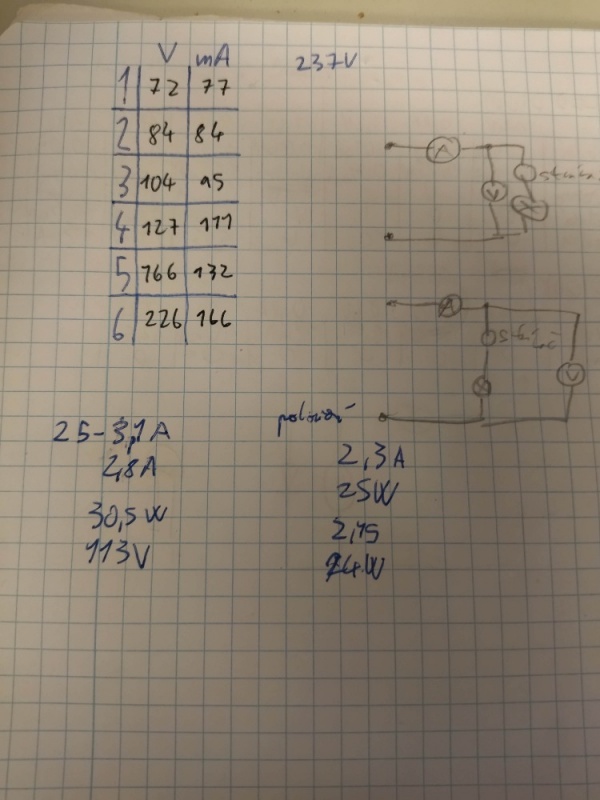 V mA
237V
1 72 77
2 84 84
3 104 95
4 127 111
5 166 132
6 226 166
A
V
A
V
25-3,1A
2,8A
30,5W
113V
2,3A
25W
2,15
24W